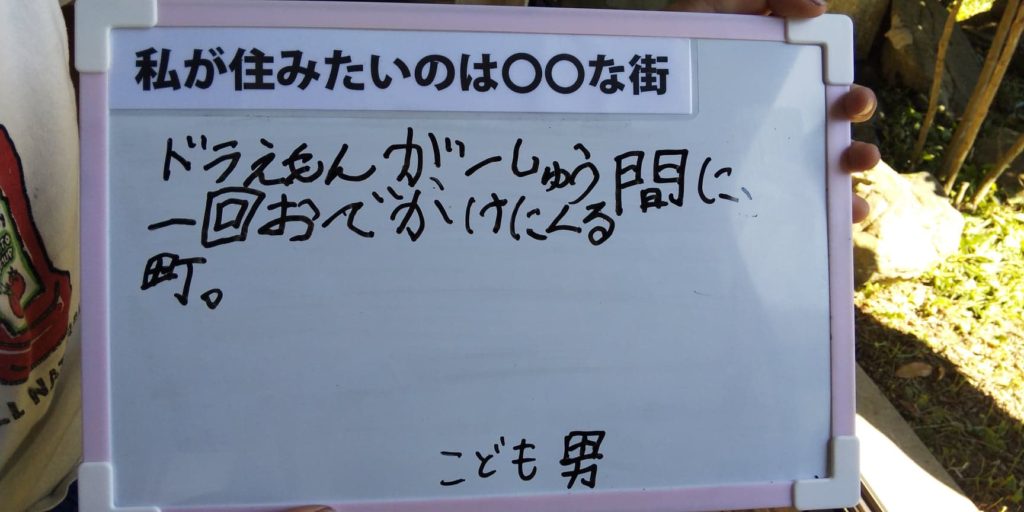 私が住みたいのは〇〇な街
ドラえもんが一しゅう間に、
一回おでかけにくる
町。
こども 男